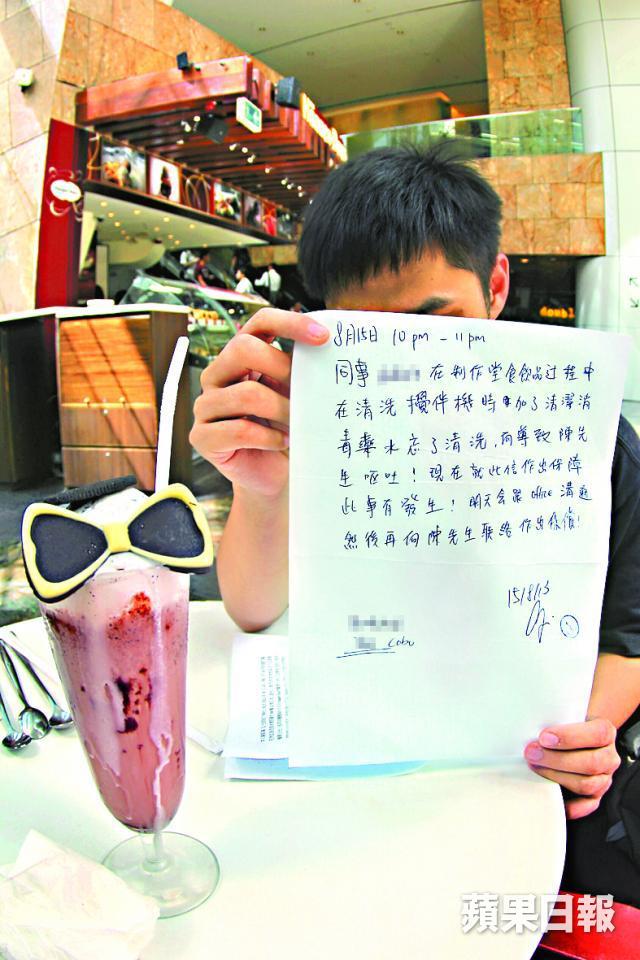 8月15日 10pm – 11pm
同事 在制作堂食飲品过程中
在清洗攪伴機時加了清潔消
毒藥水忘了清洗,而導致陳先
生嘔吐!現在就此信作出保障
此事有發生!明天会跟office溝通
然後再向陳先生联络作出保償!
15/8/13
蘋果日報